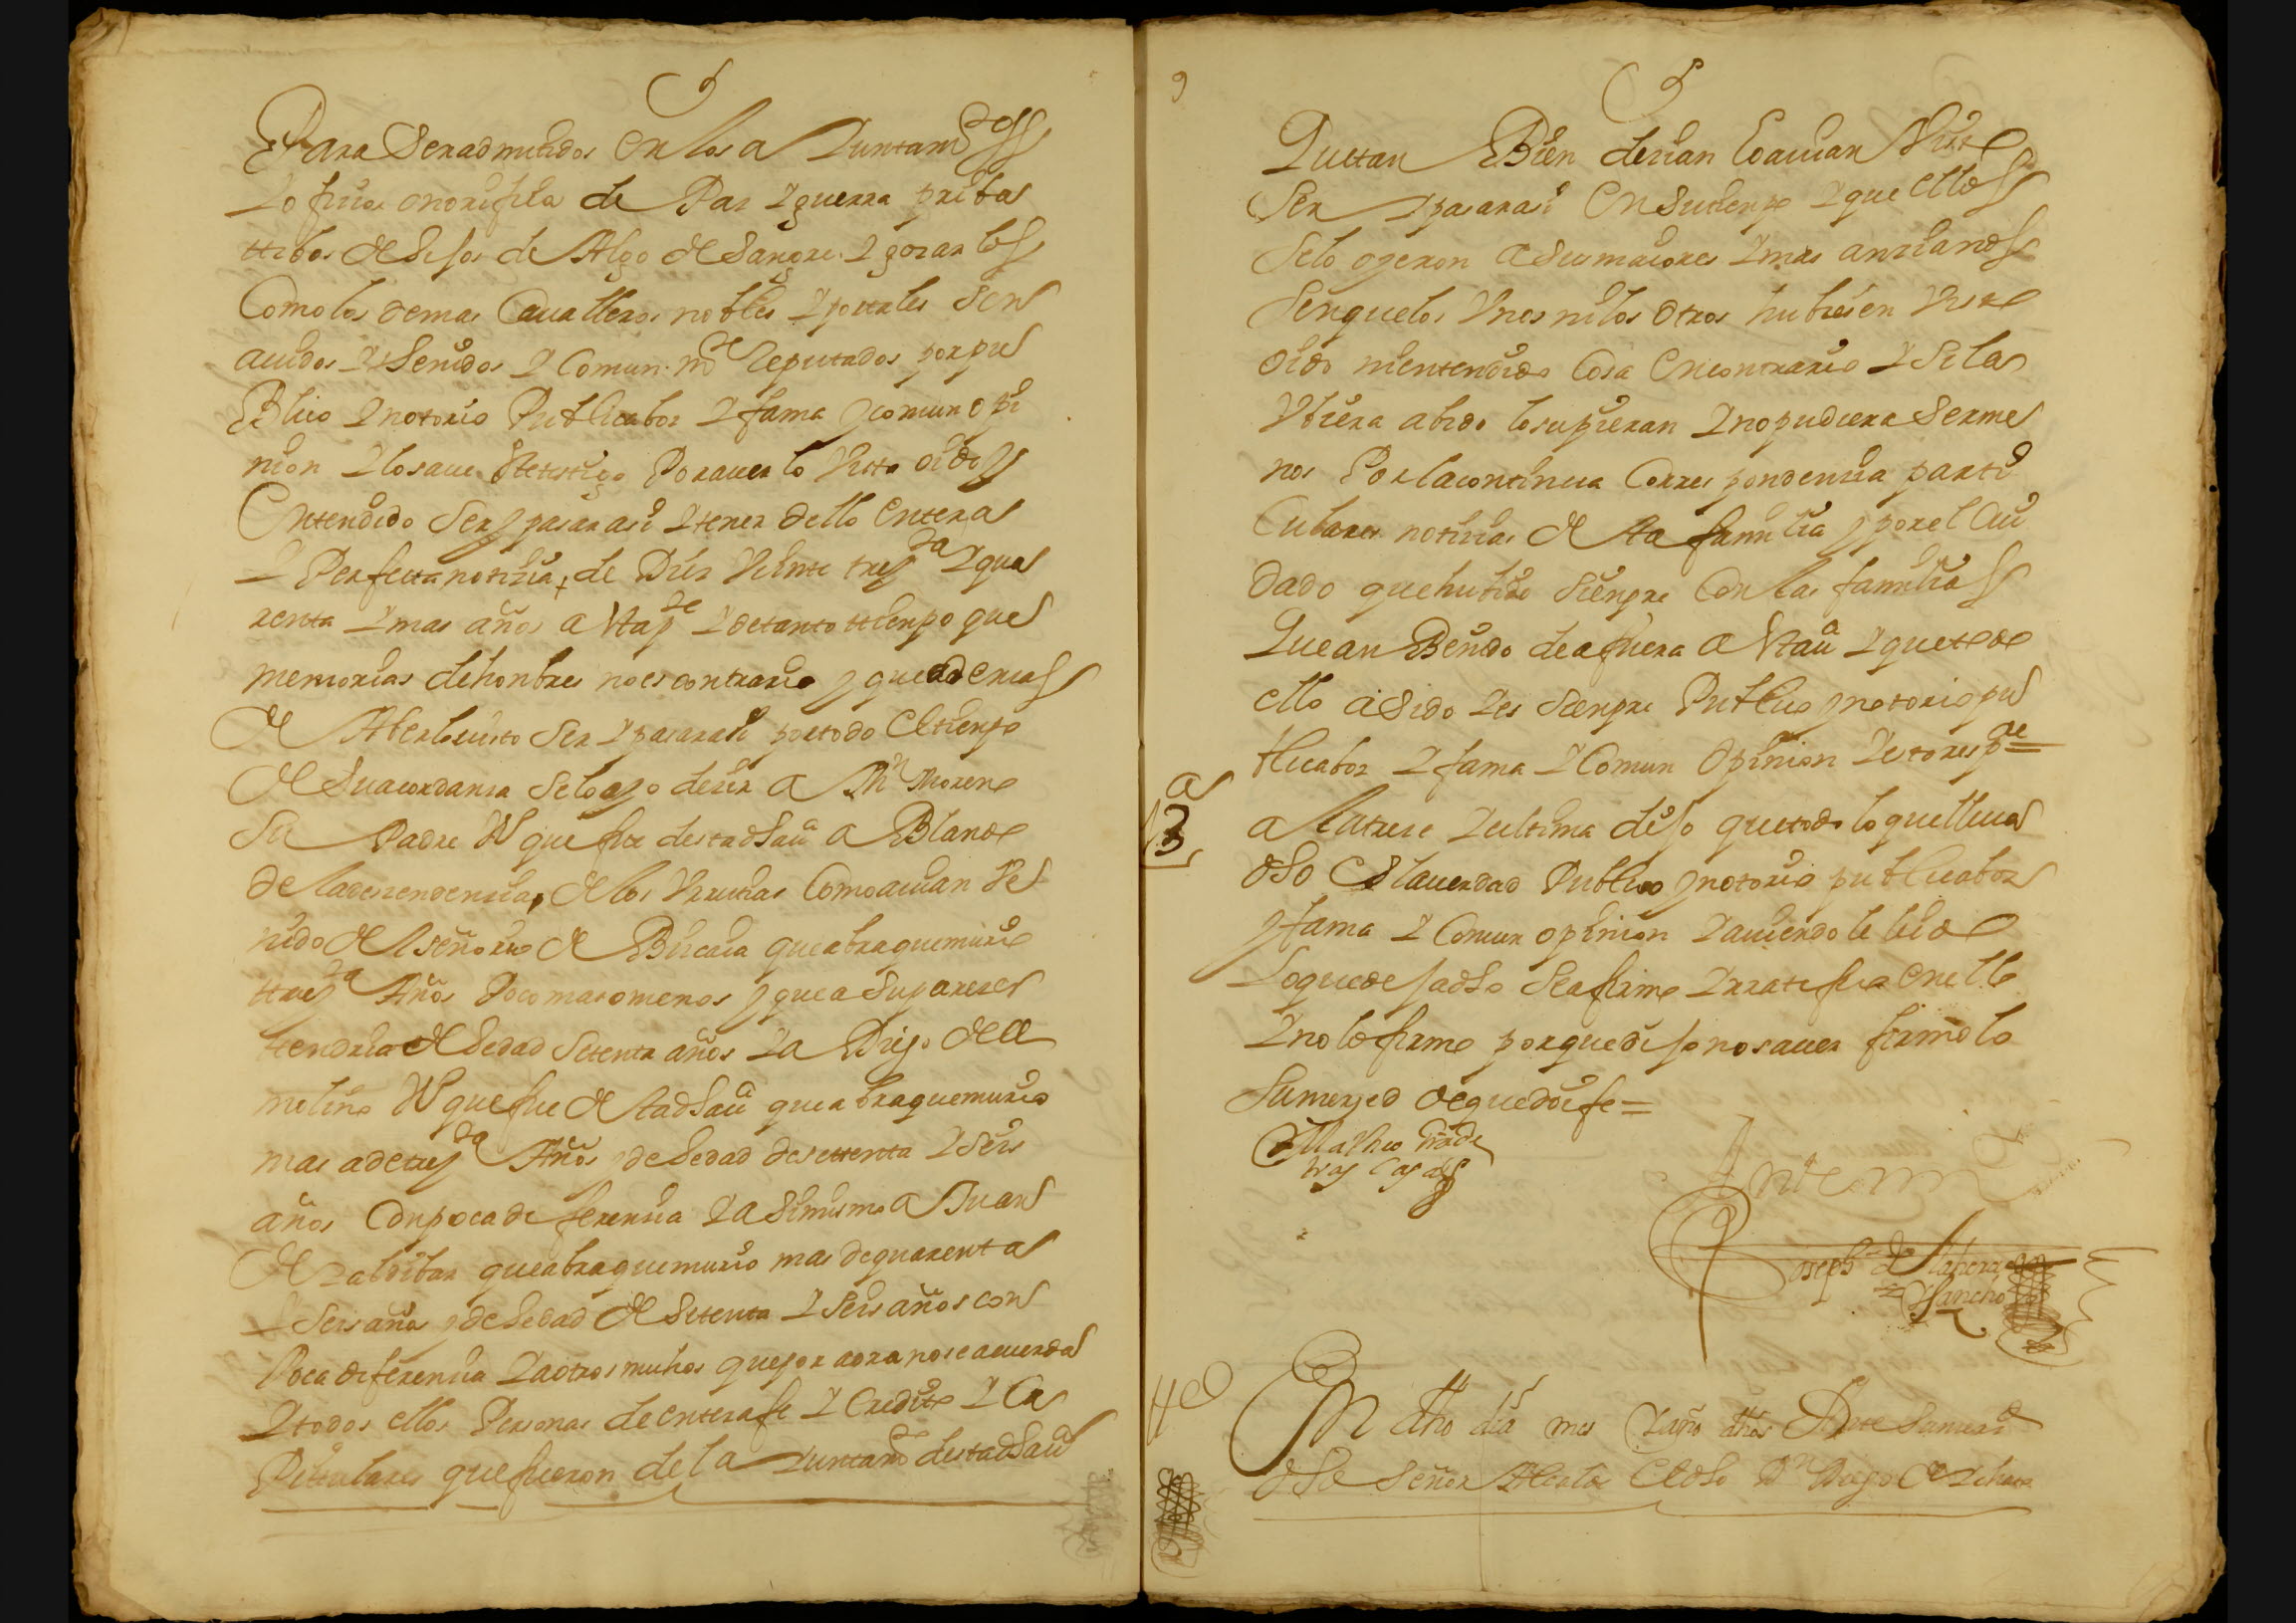 Para Ser admitidos en los a Iuntam^tos
I ofiçios onorifiços de Paz I guerra priba
tibos de Hijos de Algo de Sangre I gozarlos
Como los demas Cavalleros nobles I portales Son
avidos I thenidos I Comun m^te Reputados por pu
Blico I notorio Publicaboz I fama y comun opi
nion I lo save Este testigo Por averlo Visto oido y
Entendido Ser y pasar asi I tener dello entera
I Perfecta notiçia, de Diez Veinte trey^ta I qua
renta I mas años a esta p^te I de tanto ttienpo que
memorias de honbres no es contrario y que ademas
de Aberlo visto Ser I pasar asi por todo el tienpo
de Su acordanza Se lo oyo dezir a M^n Moreno
Su Padre V^o que fue desta dha vi^a a Blando
de la desçendençia, de los Urrutias Como avian Ve
nido del señorio de Bizcaia que abra que murio
ttrey^ta Años Poco mas o menos y que a Su pareçer
tendria de hedad Setenta años I a Diego de el
molino V^o que fue desta dha vi^a que abra que murio
mas a de trey^ta Años y de hedad de settenta I Seis
años Con poca diferençia I a Simismo a Juan
de Zaldibar que abra que murio mas de quarenta
I Seis años y de hedad de Setenta I Seis años con
Poca diferençia I a otros muchos que por aora no se acuerda
I todos ellos Personas de entera fe I Credito I Ca
Pitulares que fueron del a Iuntam^to desta dha vi^a
9
I uctan Bien dezian lo avian Visto
Ser I pasar asi en Su tienpo I que ellos
Se lo oyeron a Sus maiores I mas anzianos
Sin que los Unos ni los otros hubiesen Visto
oido ni entendido Cosa en contrario I Si la
Ubiera abido lo supieran I no pudiera Ser me
nos Por la continua Correspondençia parti
Culares notiçias de sta familia y por el Cui
dado que hubido Sienpre Con las familias
Que an Benido de afuera a Esta vi^a I que todo
ello a Sido I es Sienpre Publico y notorio pu
blicaboz I fama I Comun Opinion I esto resp^de =
13^a
a la treze I ultima dijo que todo lo que lleva
dho es la verdad Publico y notorio publicaboz
y fama I Comun opinion I aviendole leido
Lo que deja dho Se afirmo I rratifico en ello
I no lo firmo porque dijo no saver firmolo
Su merzed de que doi fe =
Matheo frnz de
tras casas
Ante mi
Joseph de Nabera
Sancho
t^o
En dho dia mes I año dhos Ante Su merz^d
dho Señor Alcalde el dho D^n Diego de Ochoa